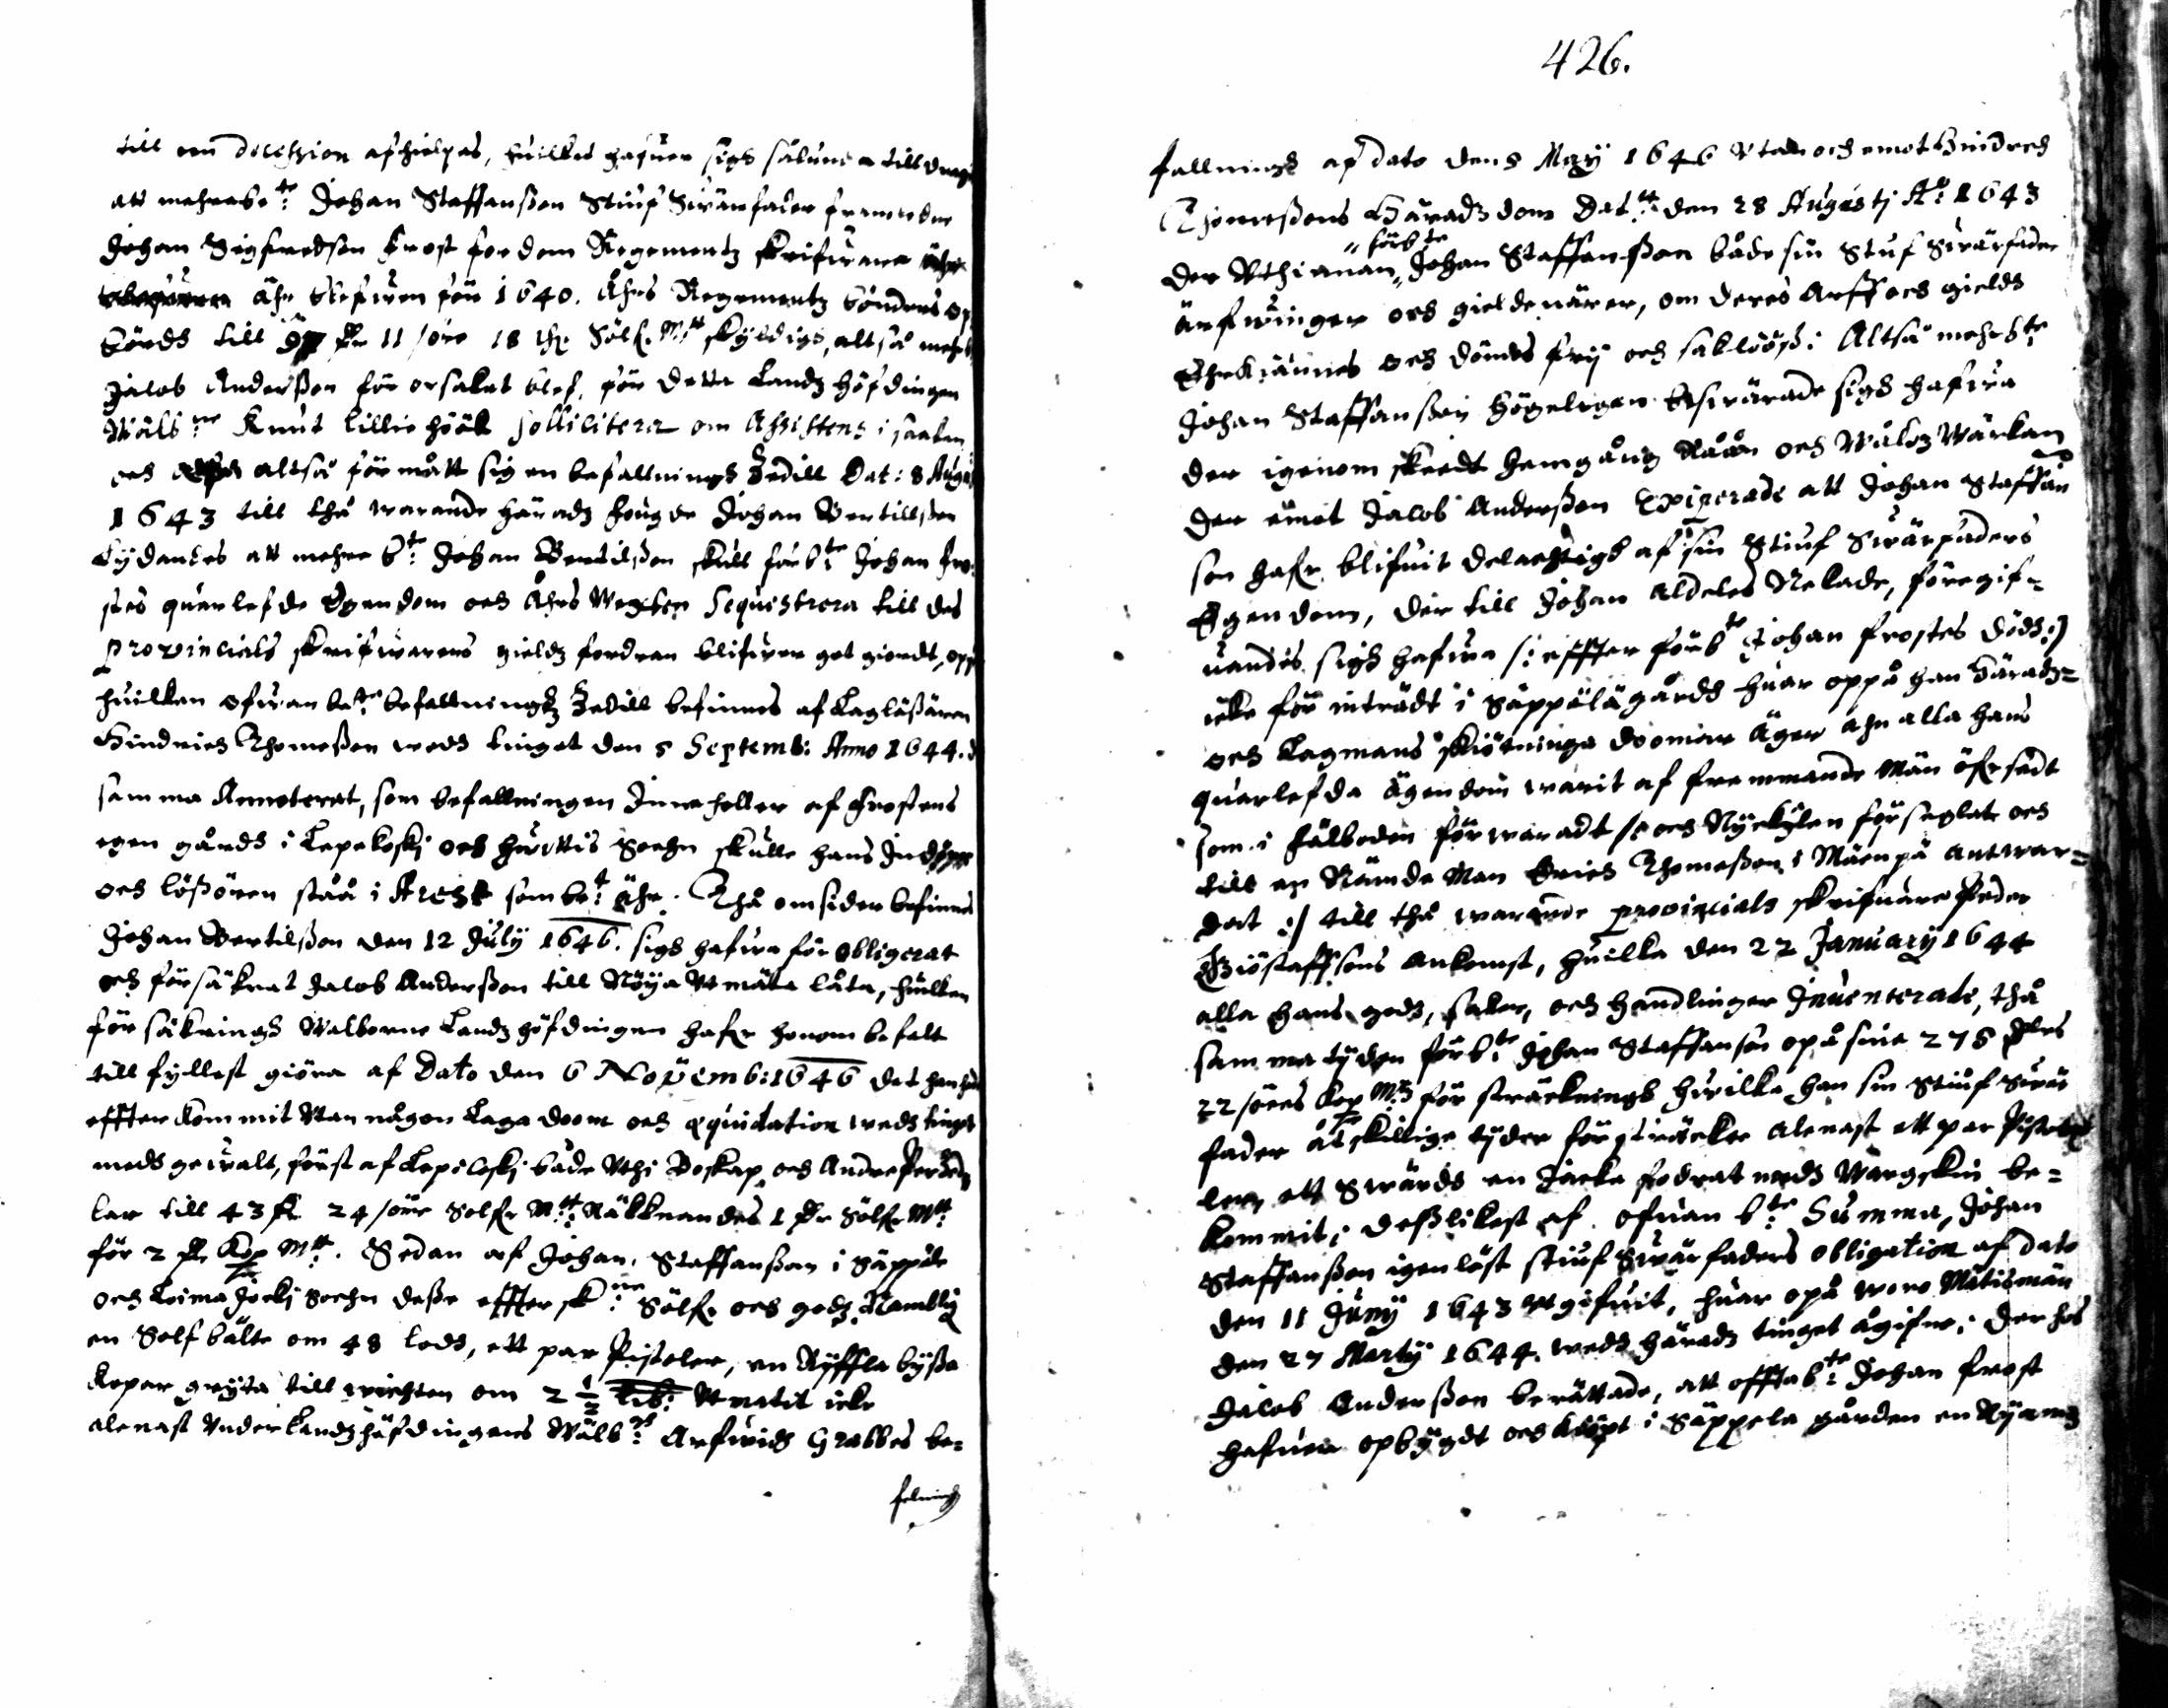 till een decission afhielpes, huilket hafuer sigh sålunda tilldragit
att mehrabe:te Johan Staffanßon Stiuf Swärfader framledne
Johan Sigfredson Frost fordom Regementz skrifware
åhr blefwen för 1640. Åhrs Regementz bönders op
börds till dr 11 söre 18 Sölf. M:tt skyldigh, altså mehrb
Jacob Anderßon för orsakat blef, för detta Landz höfdingen
Wälb:ne Knut Lillie höök sollicitera om Assistens i saaken
och altså förmått sig en befallningz Zedill Dat: 8 Augusti
1643 till thå warande häradz fougde Johan Bertillßon
Lydandes att mehre b:te Johan Bertilßon skull förb:te Johan Fro-
stes quarlefde Egendom och Åhrs Wexten Sequestrera till des
Provincials skrifwarens gieldz fordran blifwer got giordt, opp
huilken ofwanbe:te befallningz Zedill befinnes af Laglößaren
Hindrich Thomeßon wedh tinget den 5 Septemb: Anno 1644.
samma Annoterat, som befallningen Innehåller af Frostens
egen gårdh i Lepekoskj och Hwittis Sochn skulle hans
och lößören ståå i Arest som be:t åhr. Thå omsider befinnes
Johan Bertilßon den 12 July 1646. sigh hafwa för obligerat
och försäkrat Jacob Anderßon till Nöya Utmäta låta, huilken
försäkringh Walborne Landz höfdingen hafr honom befalt
till fyllest giöra af Dato den 6 Novemb: 1646 det han
effterkommit Utan någon Laga doom och liquidation wedh tinget
medh gewalt, först af Lepicoskj både Uthi Boskap och Andre Perced
lar till 43 dr 24 söre Solfr M:tt Räkknandes 1 dr Sölfr M:tt
för 2 dr Kop M:tt. Sedan af Johan Staffanßon i Säppilä
och Loima Jockj Sochn deße effter sk:ne Sölfr och godz Namblig
en Solf bälte om 48 lodh, ett par Pistoler, en Ryffla byßa
Kopar gryta till wichten om 2 1/2 Lib: Utmätit icke
alenast Under Landzhöfdingens Wälb:ns Arfwidh Grabbes be-
felningh
426.
fallningh af dato den 8 May 1646 Utan och emot Hindrich
Thomeßons Häradz dom Dat:tt den 28 Augustj A:o 1643
der Uthinnan förb:te Johan Staffanßon både sin Stuf Swärfader
arfwinger och gieldenärer, om deres Arff och gieldh
Ehrkiännes och dömbs frij och saklööß: Altså mehrb:te
Johan Staffanßon högeligen beswärade sigh hafwa
der igenom skeedt hemgång Råån och Wåldz Wärkan
der emot Jacob Anderßon Exiperade att Johan Staffan
son hafr blifuit delachtigh af sin Stiuf Swärfaders
Egendom, der till Johan aldeles Nekade, föregif-
uandes sigh hafwa /: effter förb:te Johan Frostes dödh:/
icke förinträdt i Säppälägårdh huar oppå han Häradz-
och Lagmans skiötninga doomar äger uhn alla hans
quarlefda ägendom warit af fremmande Män öfrsedt
som i Fålboden förwaradt /: och Nyckylen förseglat och
till en Nämdeman Erich Thomeßon i Mäenpä antwar-
dat :/ till thå warande provincials skrifuare Peder
Giöstaffsons ankomst, huilka den 22 January 1644
alla hans godz, saker, och handlinger Inuenterade, thå
samma tyden förb:te Johan Staffanson opå sine 278 dlrs
22 söres Kop M:z försträckningh hwilka han sin Stiuf Swär
fader åtskillige tyder förstreckte alenast ett par Pistoler
ett Swärdh en Jacka fodrat medh Wargskin be-
kommit, deßlikest af ofuan b:te Summa, Johan
Staffanßon igenlöst stiuf Swärfaders obligation af dato
den 11 Juny 1643 utgifuit, huar opå wore Mätismän
den 27 Martij 1644. wedh häradz tinget ågifne: der hos
Jacob Anderßon berättade, att offtab:te Johan Frost
hafuer opbygdt och kööpt i Säppela gården en Ny